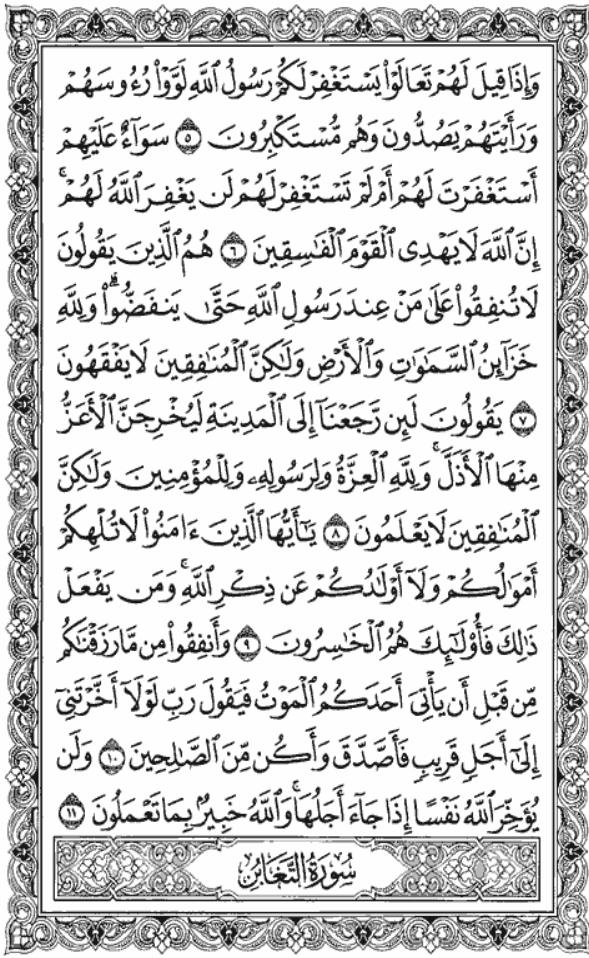 وَإِذَا قِيلَ لَهُمْ تَعَالَوْا۟ يَسْتَغْفِرْ لَكُمْ رَسُولُ ٱللَّهِ لَوَّوْا۟ رُءُوسَهُمْ
وَرَأَيْتَهُمْ يَصُدُّونَ وَهُم مُّسْتَكْبِرُونَ ٥ سَوَآءٌ عَلَيْهِمْ
أَسْتَغْفَرْتَ لَهُمْ أَمْ لَمْ تَسْتَغْفِرْ لَهُمْ لَن يَغْفِرَ ٱللَّهُ لَهُمْ ۚ
إِنَّ ٱللَّهَ لَا يَهْدِى ٱلْقَوْمَ ٱلْفَـٰسِقِينَ ٦ هُمُ ٱلَّذِينَ يَقُولُونَ
لَا تُنفِقُوا۟ عَلَىٰ مَنْ عِندَ رَسُولِ ٱللَّهِ حَتَّىٰ يَنفَضُّوا۟ ۗ وَلِلَّهِ
خَزَآئِنُ ٱلسَّمَـٰوَٰتِ وَٱلْأَرْضِ وَلَـٰكِنَّ ٱلْمُنَـٰفِقِينَ لَا يَفْقَهُونَ
٧ يَقُولُونَ لَئِن رَّجَعْنَآ إِلَى ٱلْمَدِينَةِ لَيُخْرِجَنَّ ٱلْأَعَزُّ
مِنْهَا ٱلْأَذَلَّ ۚ وَلِلَّهِ ٱلْعِزَّةُ وَلِرَسُولِهِۦ وَلِلْمُؤْمِنِينَ وَلَـٰكِنَّ
ٱلْمُنَـٰفِقِينَ لَا يَعْلَمُونَ ٨ يَـٰٓأَيُّهَا ٱلَّذِينَ ءَامَنُوا۟ لَا تُلْهِكُمْ
أَمْوَٰلُكُمْ وَلَآ أَوْلَـٰدُكُمْ عَن ذِكْرِ ٱللَّهِ ۚ وَمَن يَفْعَلْ
ذَٰلِكَ فَأُو۟لَـٰٓئِكَ هُمُ ٱلْخَـٰسِرُونَ ٩ وَأَنفِقُوا۟ مِن مَّا رَزَقْنَـٰكُم
مِّن قَبْلِ أَن يَأْتِىَ أَحَدَكُمُ ٱلْمَوْتُ فَيَقُولَ رَبِّ لَوْلَآ أَخَّرْتَنِىٓ
إِلَىٰٓ أَجَلٍ قَرِيبٍ فَأَصَّدَّقَ وَأَكُن مِّنَ ٱلصَّـٰلِحِينَ ١٠ وَلَن
يُؤَخِّرَ ٱللَّهُ نَفْسًا إِذَا جَآءَ أَجَلُهَا ۚ وَٱللَّهُ خَبِيرٌۢ بِمَا تَعْمَلُونَ ١١
سُورَةُ التَّغَابُنِ